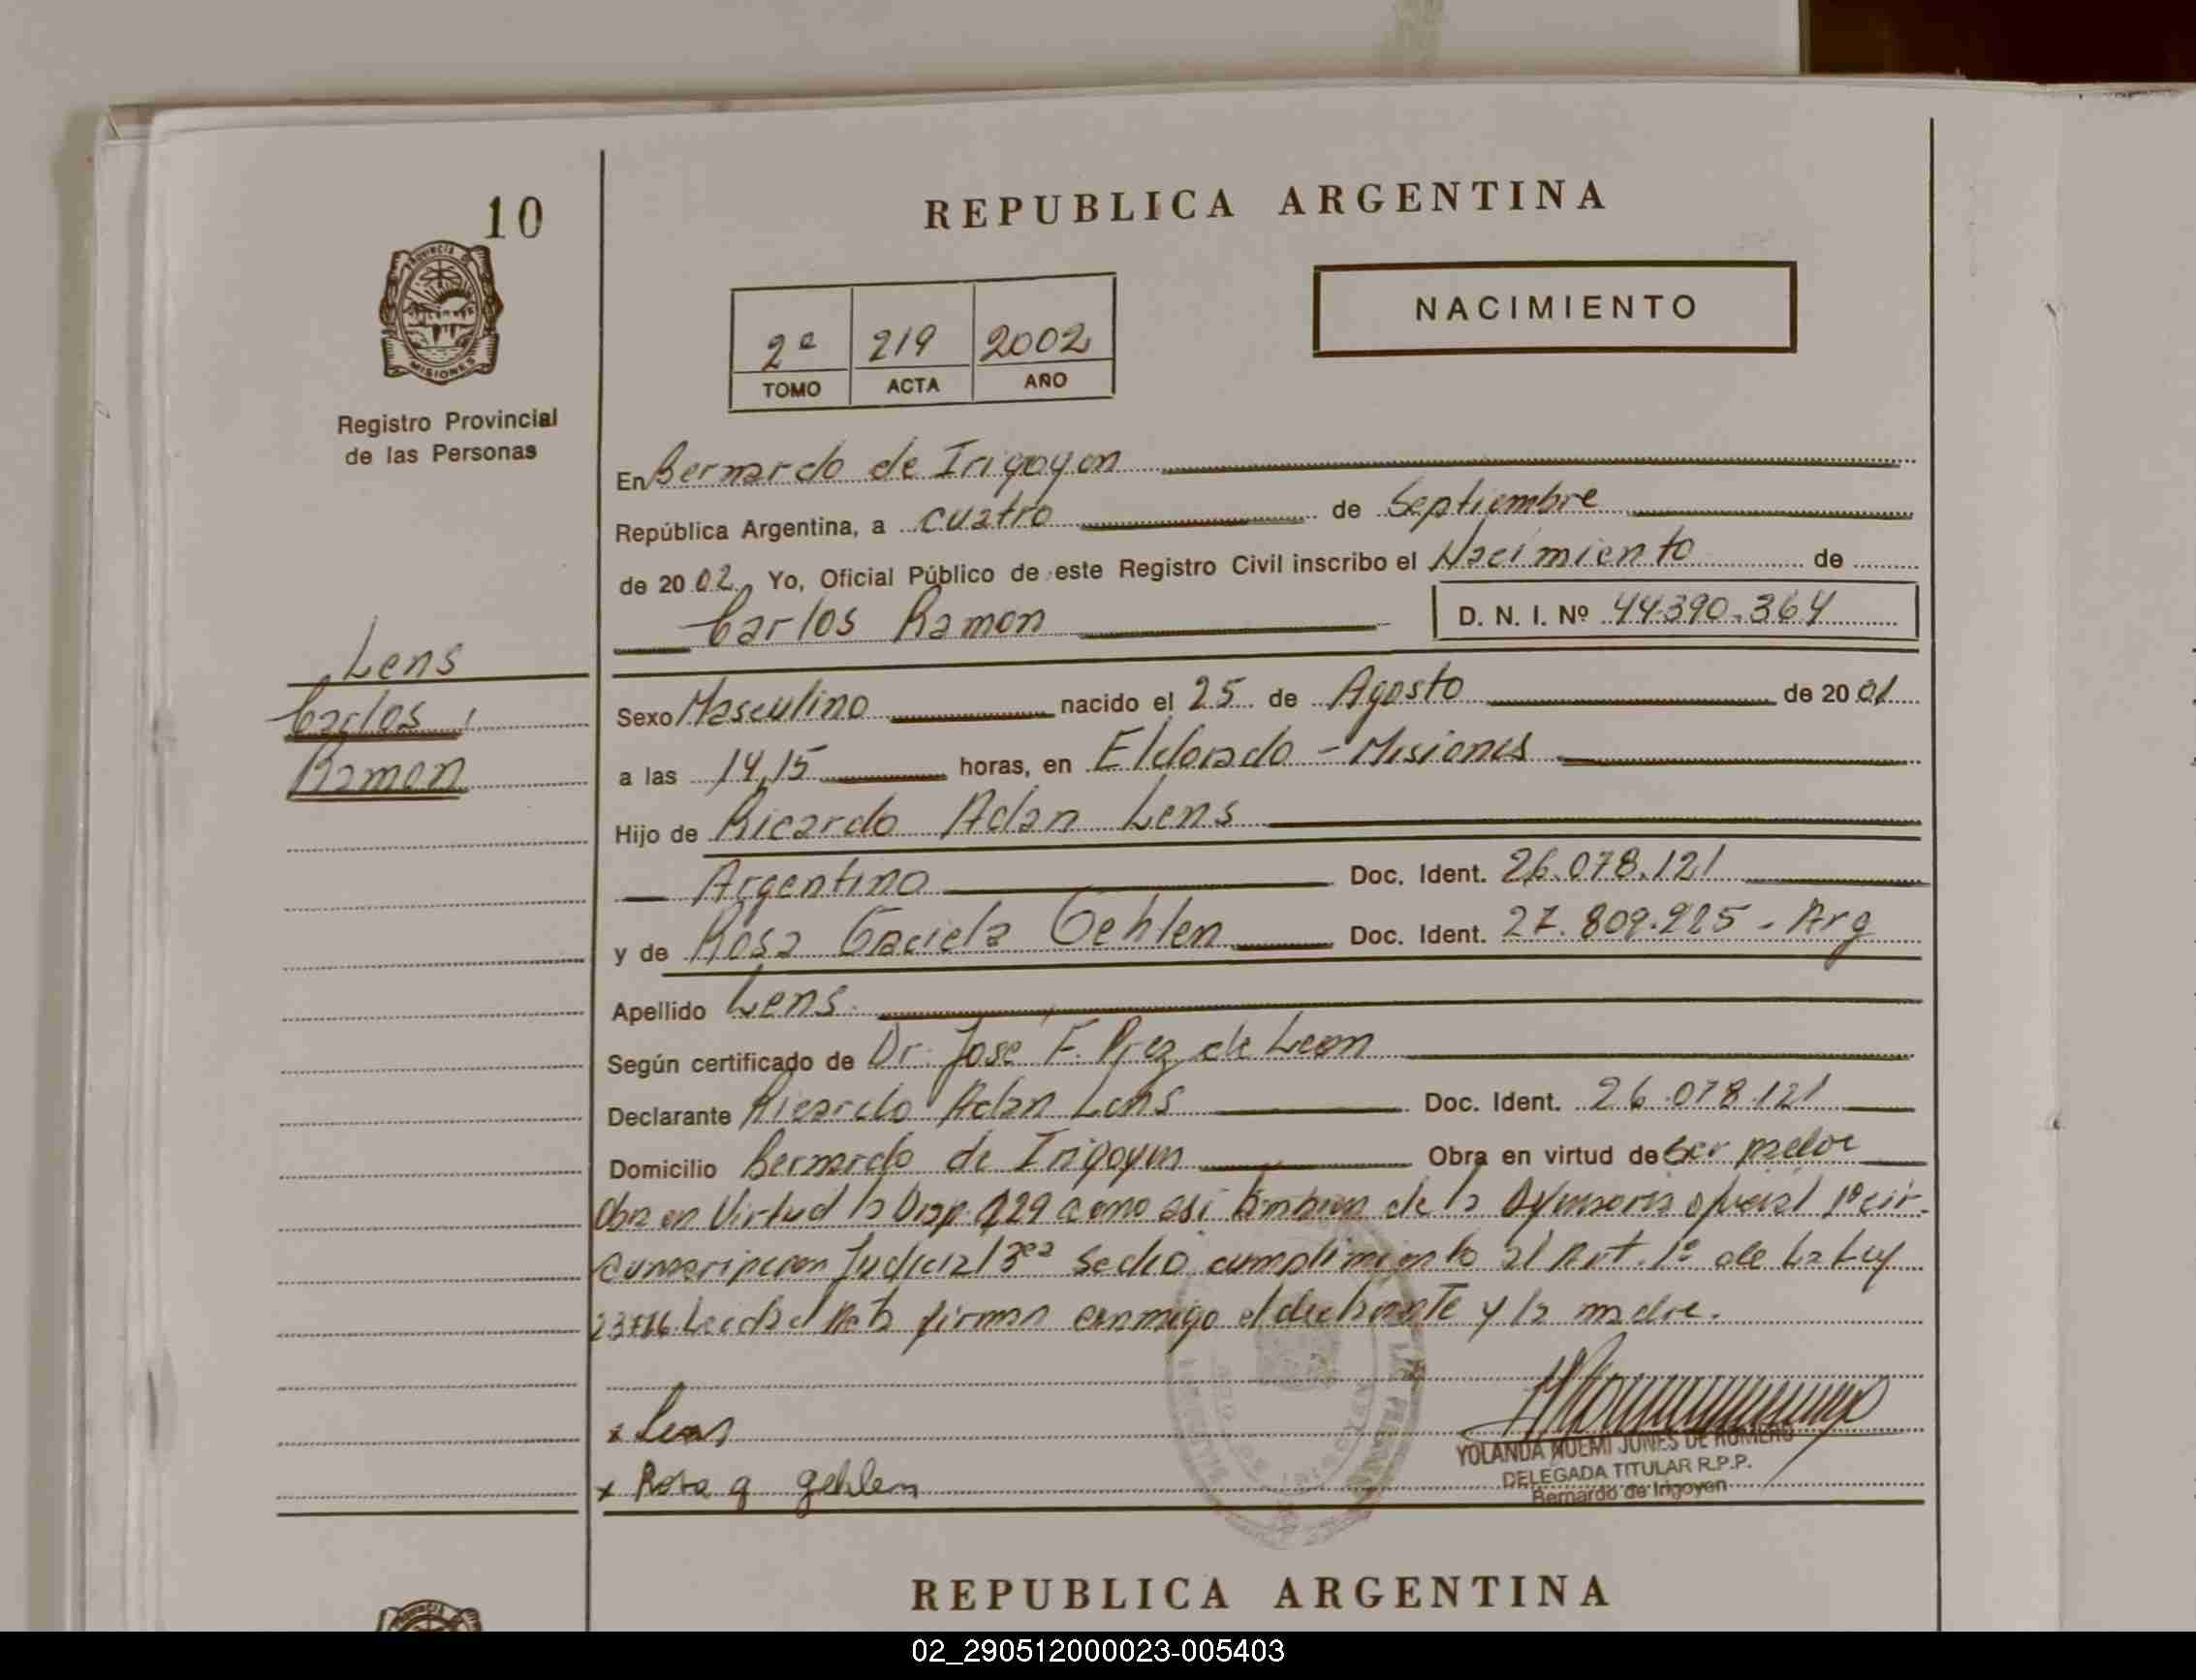 10
PROVINCIA DE
MISIONES
Registro Provincial
de las Personas
REPUBLICA ARGENTINA
NACIMIENTO
2ª 219 2002
TOMO ACTA AÑO
En Bernardo de Irigoyen
República Argentina, a cuatro de Septiembre
de 2002. Yo, Oficial Público de este Registro Civil inscribo el Nacimiento de
Carlos Ramon D. N. I. Nº 44.390.364
Lens
Carlos
Ramon
Sexo Masculino nacido el 25 de Agosto de 2001
a las 14,15 horas, en Eldorado - Misiones
Hijo de Ricardo Adan Lens
Argentino Doc. Ident. 26.078.121
y de Rosa Graciela Gehlen Doc. Ident. 27.809.225 - Arg
Apellido Lens
Según certificado de Dr. Jose F. de Leon
Declarante Ricardo Adan Lens Doc. Ident. 26.078.121
Domicilio Bernardo de Irigoyen Obra en virtud de ser padre
Obra en Virtud la Disp. como asi tambien de la oficial 1º cir-
cunscripcion Judicial 3ra Se dio cumplimiento al Art. 1º de La Ley
Leida el Acta firman conmigo el declarante y la madre.
x Lens
x Rosa g gehlen
YOLANDA NOEMI JUNES DE ROMERO
DELEGADA TITULAR R.P.P.
Bernardo de Irigoyen
REPUBLICA ARGENTINA
PROVINCIA
02_290512000023-005403